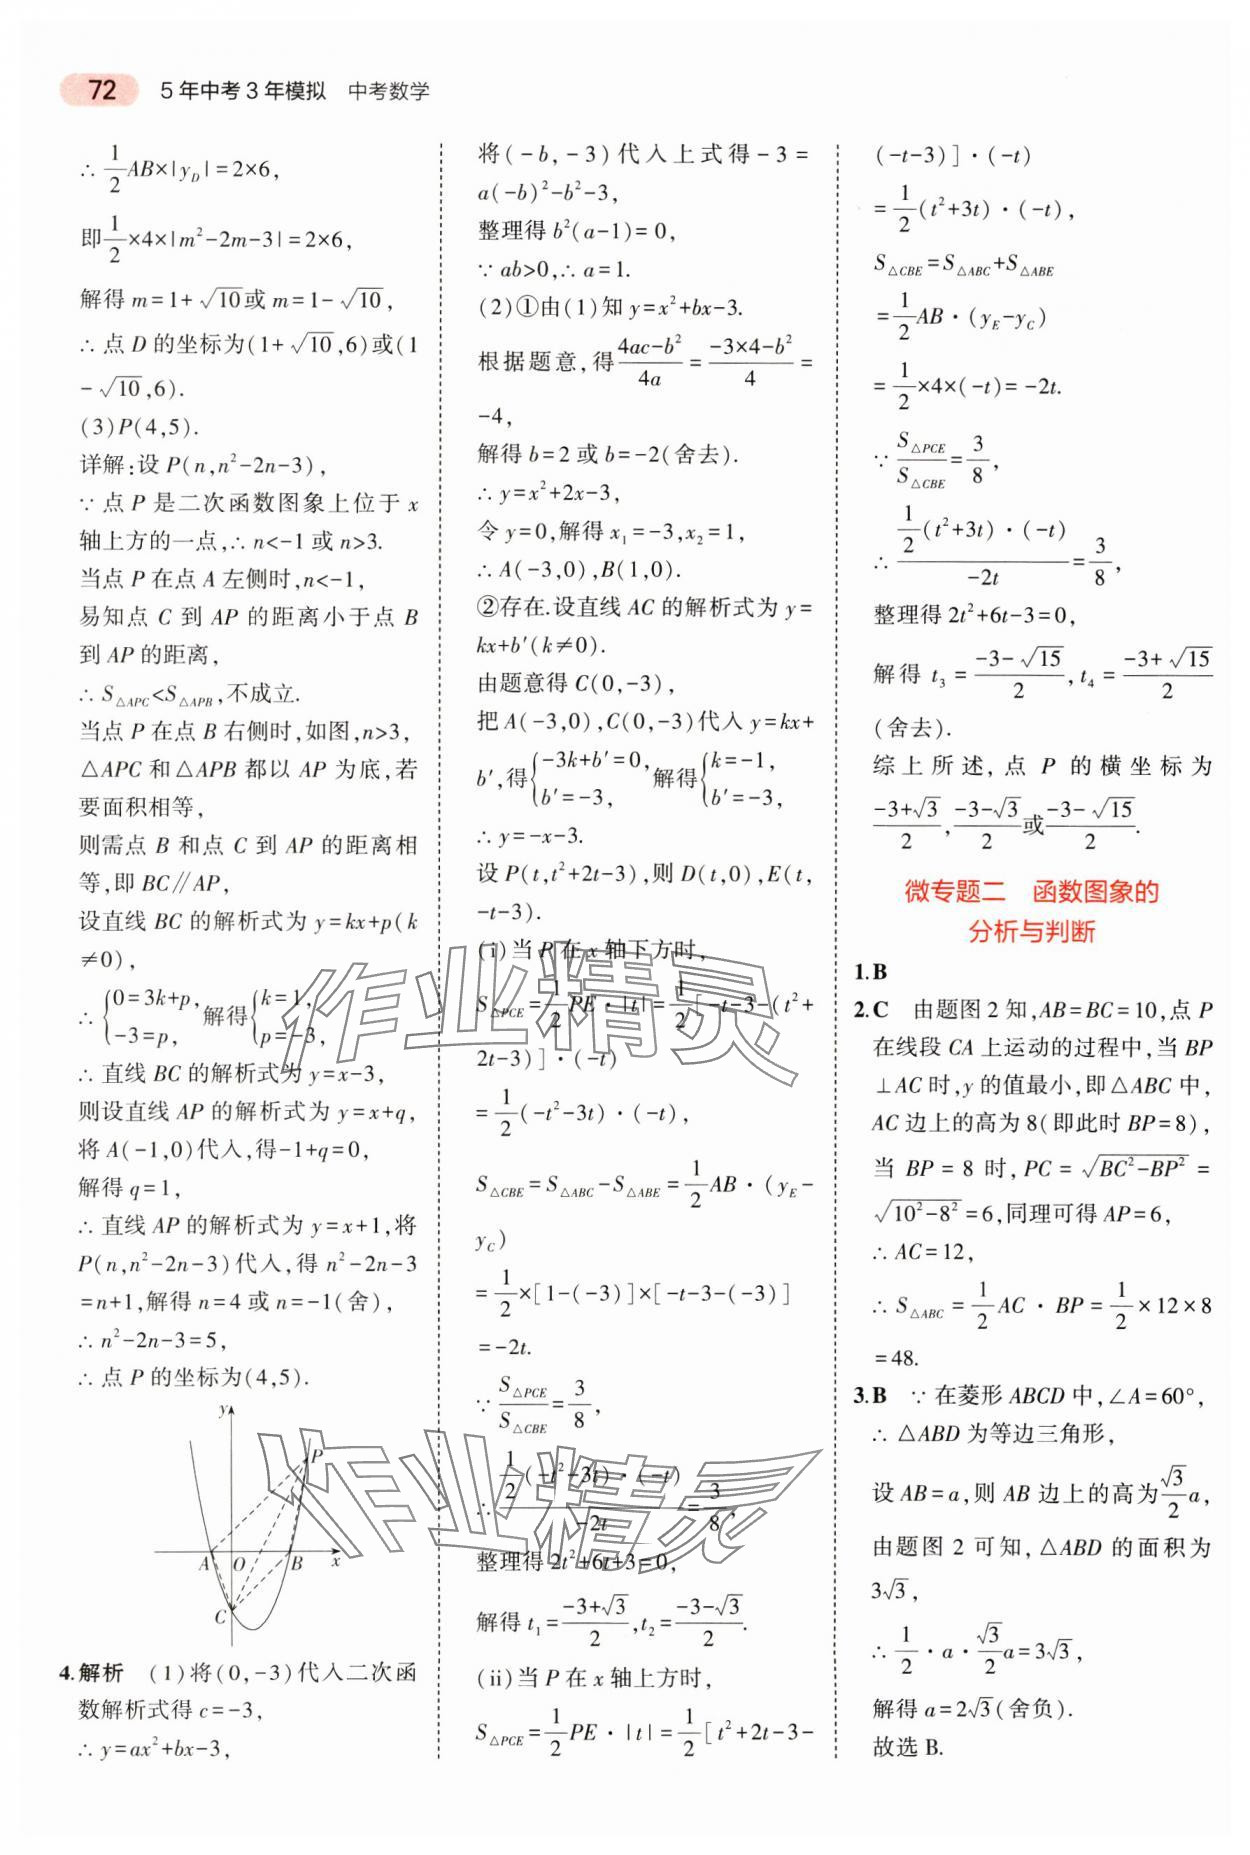 72 5年中考3年模拟 中考数学
∴ 1/2 AB×|y_D|=2×6,
即1/2×4×|m²-2m-3|=2×6,
解得 m=1+√10或 m=1-√10,
∴ 点 D 的坐标为(1+√10,6)或(1
-√10,6).
(3)P(4,5).
详解:设 P(n,n²-2n-3),
∵ 点 P 是二次函数图象上位于 x
轴上方的一点,∴ n<-1 或 n>3.
当点 P 在点 A 左侧时,n<-1,
易知点 C 到 AP 的距离小于点 B
到 AP 的距离,
∴ S△APC<S△APB,不成立.
当点 P 在点 B 右侧时,如图,n>3,
△APC 和△APB 都以 AP 为底,若
要面积相等,
则需点 B 和点 C 到 AP 的距离相
等,即 BC∥AP,
设直线 BC 的解析式为 y=kx+p(k
≠0),
∴ {0=3k+p, -3=p, 解得{k=1, p=-3,
∴ 直线 BC 的解析式为 y=x-3,
则设直线 AP 的解析式为 y=x+q,
将 A(-1,0)代入,得-1+q=0,
解得 q=1,
∴ 直线 AP 的解析式为 y=x+1,将
P(n,n²-2n-3)代入,得 n²-2n-3
=n+1,解得 n=4 或 n=-1(舍),
∴ n²-2n-3=5,
∴ 点 P 的坐标为(4,5).
y
P
A O B x
C
4.解析 (1)将(0,-3)代入二次函
数解析式得 c=-3,
∴ y=ax²+bx-3,
将(-b,-3)代入上式得-3=
a(-b)²-b²-3,
整理得 b²(a-1)=0,
∵ ab>0,∴ a=1.
(2)①由(1)知 y=x²+bx-3.
根据题意,得(4ac-b²)/4a=(-3×4-b²)/4=
-4,
解得 b=2 或 b=-2(舍去).
∴ y=x²+2x-3,
令 y=0,解得 x₁=-3,x₂=1,
∴ A(-3,0),B(1,0).
②存在.设直线 AC 的解析式为 y=
kx+b′(k≠0).
由题意得 C(0,-3),
把 A(-3,0),C(0,-3)代入 y=kx+
b′,得{-3k+b′=0, b′=-3, 解得{k=-1, b′=-3,
∴ y=-x-3.
设 P(t,t²+2t-3),则 D(t,0),E(t,
-t-3).
(ⅰ)当 P 在 x 轴下方时,
S△PCE=1/2 PE·|t|=1/2[-t-3-(t²+
2t-3)]·(-t)
=1/2(-t²-3t)·(-t),
S△CBE=S△ABC-S△ABE=1/2 AB·(y_E-
y_C)
=1/2×[1-(-3)]×[-t-3-(-3)]
=-2t.
∵ S△PCE/S△CBE=3/8,
∴ 1/2(-t²-3t)·(-t)/-2t=3/8,
整理得 2t²+6t+3=0,
解得 t₁=(-3+√3)/2,t₂=(-3-√3)/2.
(ⅱ)当 P 在 x 轴上方时,
S△PCE=1/2 PE·|t|=1/2[t²+2t-3-
(-t-3)]·(-t)
=1/2(t²+3t)·(-t),
S△CBE=S△ABC+S△ABE
=1/2 AB·(y_E-y_C)
=1/2×4×(-t)=-2t.
∵ S△PCE/S△CBE=3/8,
∴ 1/2(t²+3t)·(-t)/-2t=3/8,
整理得 2t²+6t-3=0,
解得 t₃=(-3-√15)/2,t₄=(-3+√15)/2
(舍去).
综上所述,点 P 的横坐标为
(-3+√3)/2,(-3-√3)/2或(-3-√15)/2.
微专题二 函数图象的
分析与判断
1.B
2.C 由题图 2 知,AB=BC=10,点 P
在线段 CA 上运动的过程中,当 BP
⊥AC 时,y 的值最小,即△ABC 中,
AC 边上的高为 8(即此时 BP=8),
当 BP=8 时,PC=√(BC²-BP²)=
√(10²-8²)=6,同理可得 AP=6,
∴ AC=12,
∴ S△ABC=1/2 AC·BP=1/2×12×8
=48.
3.B ∵ 在菱形 ABCD 中,∠A=60°,
∴ △ABD 为等边三角形,
设 AB=a,则 AB 边上的高为√3/2 a,
由题图 2 可知,△ABD 的面积为
3√3,
∴ 1/2·a·√3/2 a=3√3,
解得 a=2√3(舍负).
故选 B.
作业精灵
作业精灵